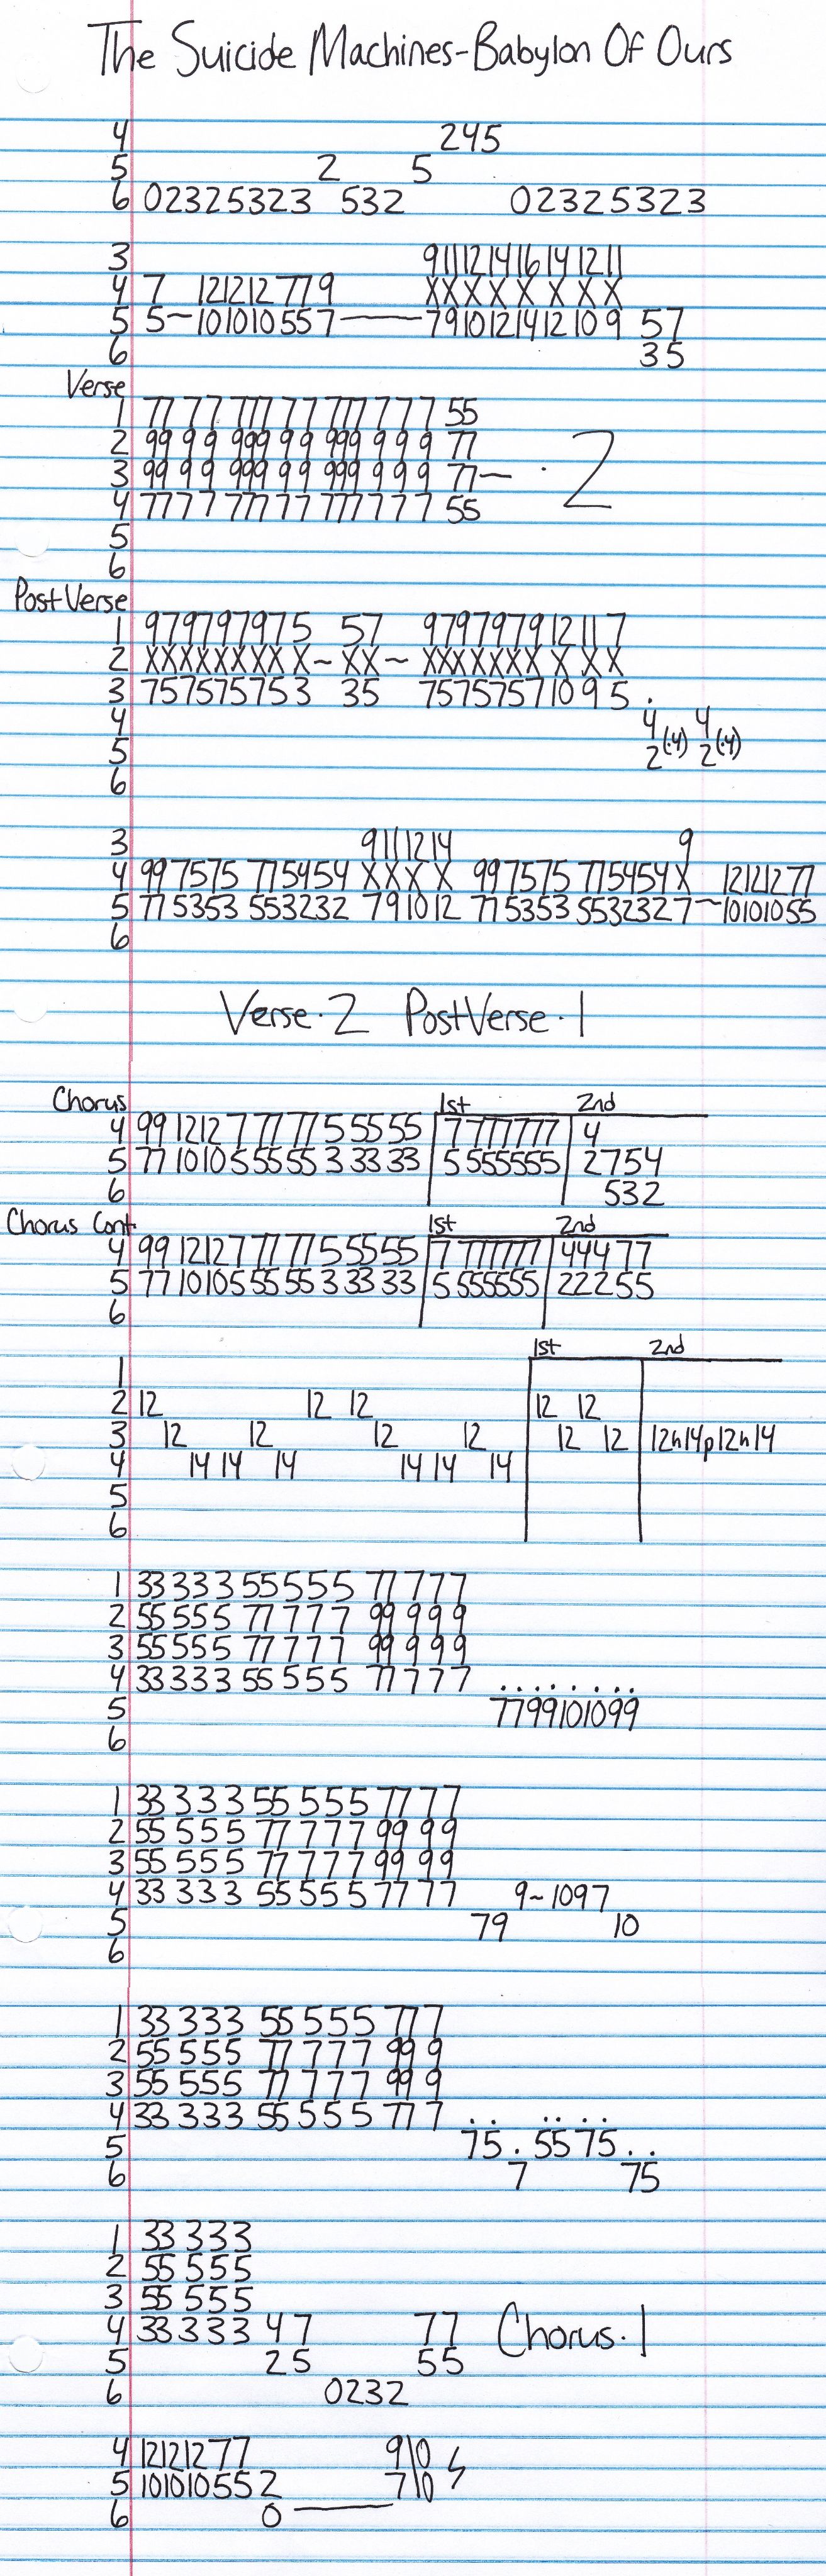 The Suicide Machines-Babylon Of Ours
4 245
5 2 5
6 02325323 532 02325323
3 9 11 12 14 16 14 12 11
4 7 12 12 12 7 7 9 X X X X X X X X
5 5~10 10 10 5 5 7—— 7 9 10 12 14 12 10 9 57
6 35
Verse
1 77 7 7 777 7 7 777 7 7 7 55
2 99 9 9 999 9 9 999 9 9 9 77
3 99 9 9 999 9 9 999 9 9 9 77— ·2
4 77 7 7 777 7 7 777 7 7 7 55
5
6
Post Verse
1 979797975 57 9797979 12 11 7
2 XXXXXXXX X~ XX~ XXXXXXX X X X
3 757575753 35 7575757 10 9 5 .
4 4 4
5 2(·4) 2(·4)
6
3 9 11 12 14 9
4 99 7575 775454 X X X X 99 7575 775454 X 12 12 12 7 7
5 77 5353 553232 7 9 10 12 77 5353 553232 7~10 10 10 5 5
6
Verse·2 PostVerse·1
Chorus 1st 2nd
4 99 12 12 7 77 77 5 55 55 7 777777 4
5 77 10 10 5 55 55 3 33 33 5 555555 2754
6 532
Chorus Cont. 1st 2nd
4 99 12 12 7 77 77 5 55 55 7 777777 44477
5 77 10 10 5 55 55 3 33 33 5 555555 22255
6
1st 2nd
1
2 12 12 12 12 12
3 12 12 12 12 12 12 12h14p12h14
4 14 14 14 14 14 14
5
6
1 33 333 55 555 77 777
2 55 555 77 777 99 999
3 55 555 77 777 99 999
4 33 333 55 555 77 777 . . . . . . . .
5 7 7 9 9 10 10 9 9
6
1 33 333 55 555 77 77
2 55 555 77 777 99 99
3 55 555 77 777 99 99
4 33 333 55 555 77 77 9~10 9 7
5 79 10
6
1 33 333 55 555 77 7
2 55 555 77 777 99 9
3 55 555 77 777 99 9
4 33 333 55 555 77 7 . . . . . .
5 75 . 5575 . .
6 7 75
1 33 333
2 55 555
3 55 555
4 33 333 47 77 Chorus·1
5 25 55
6 0232
4 12 12 12 7 7 9\0
5 10 10 10 5 5 2 7\0
6 0——